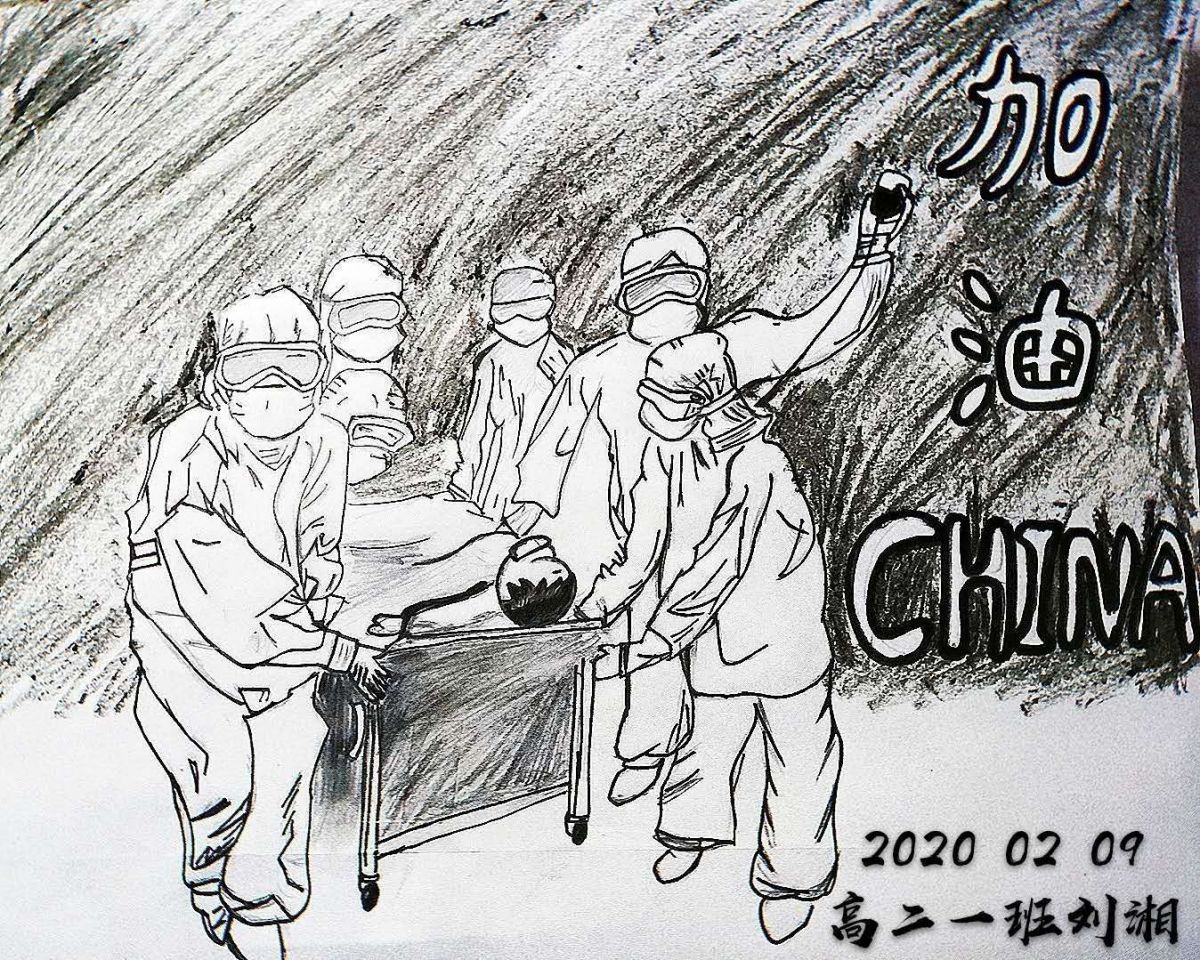 加
油
CHINA
2020 02 09
高二一班刘湘